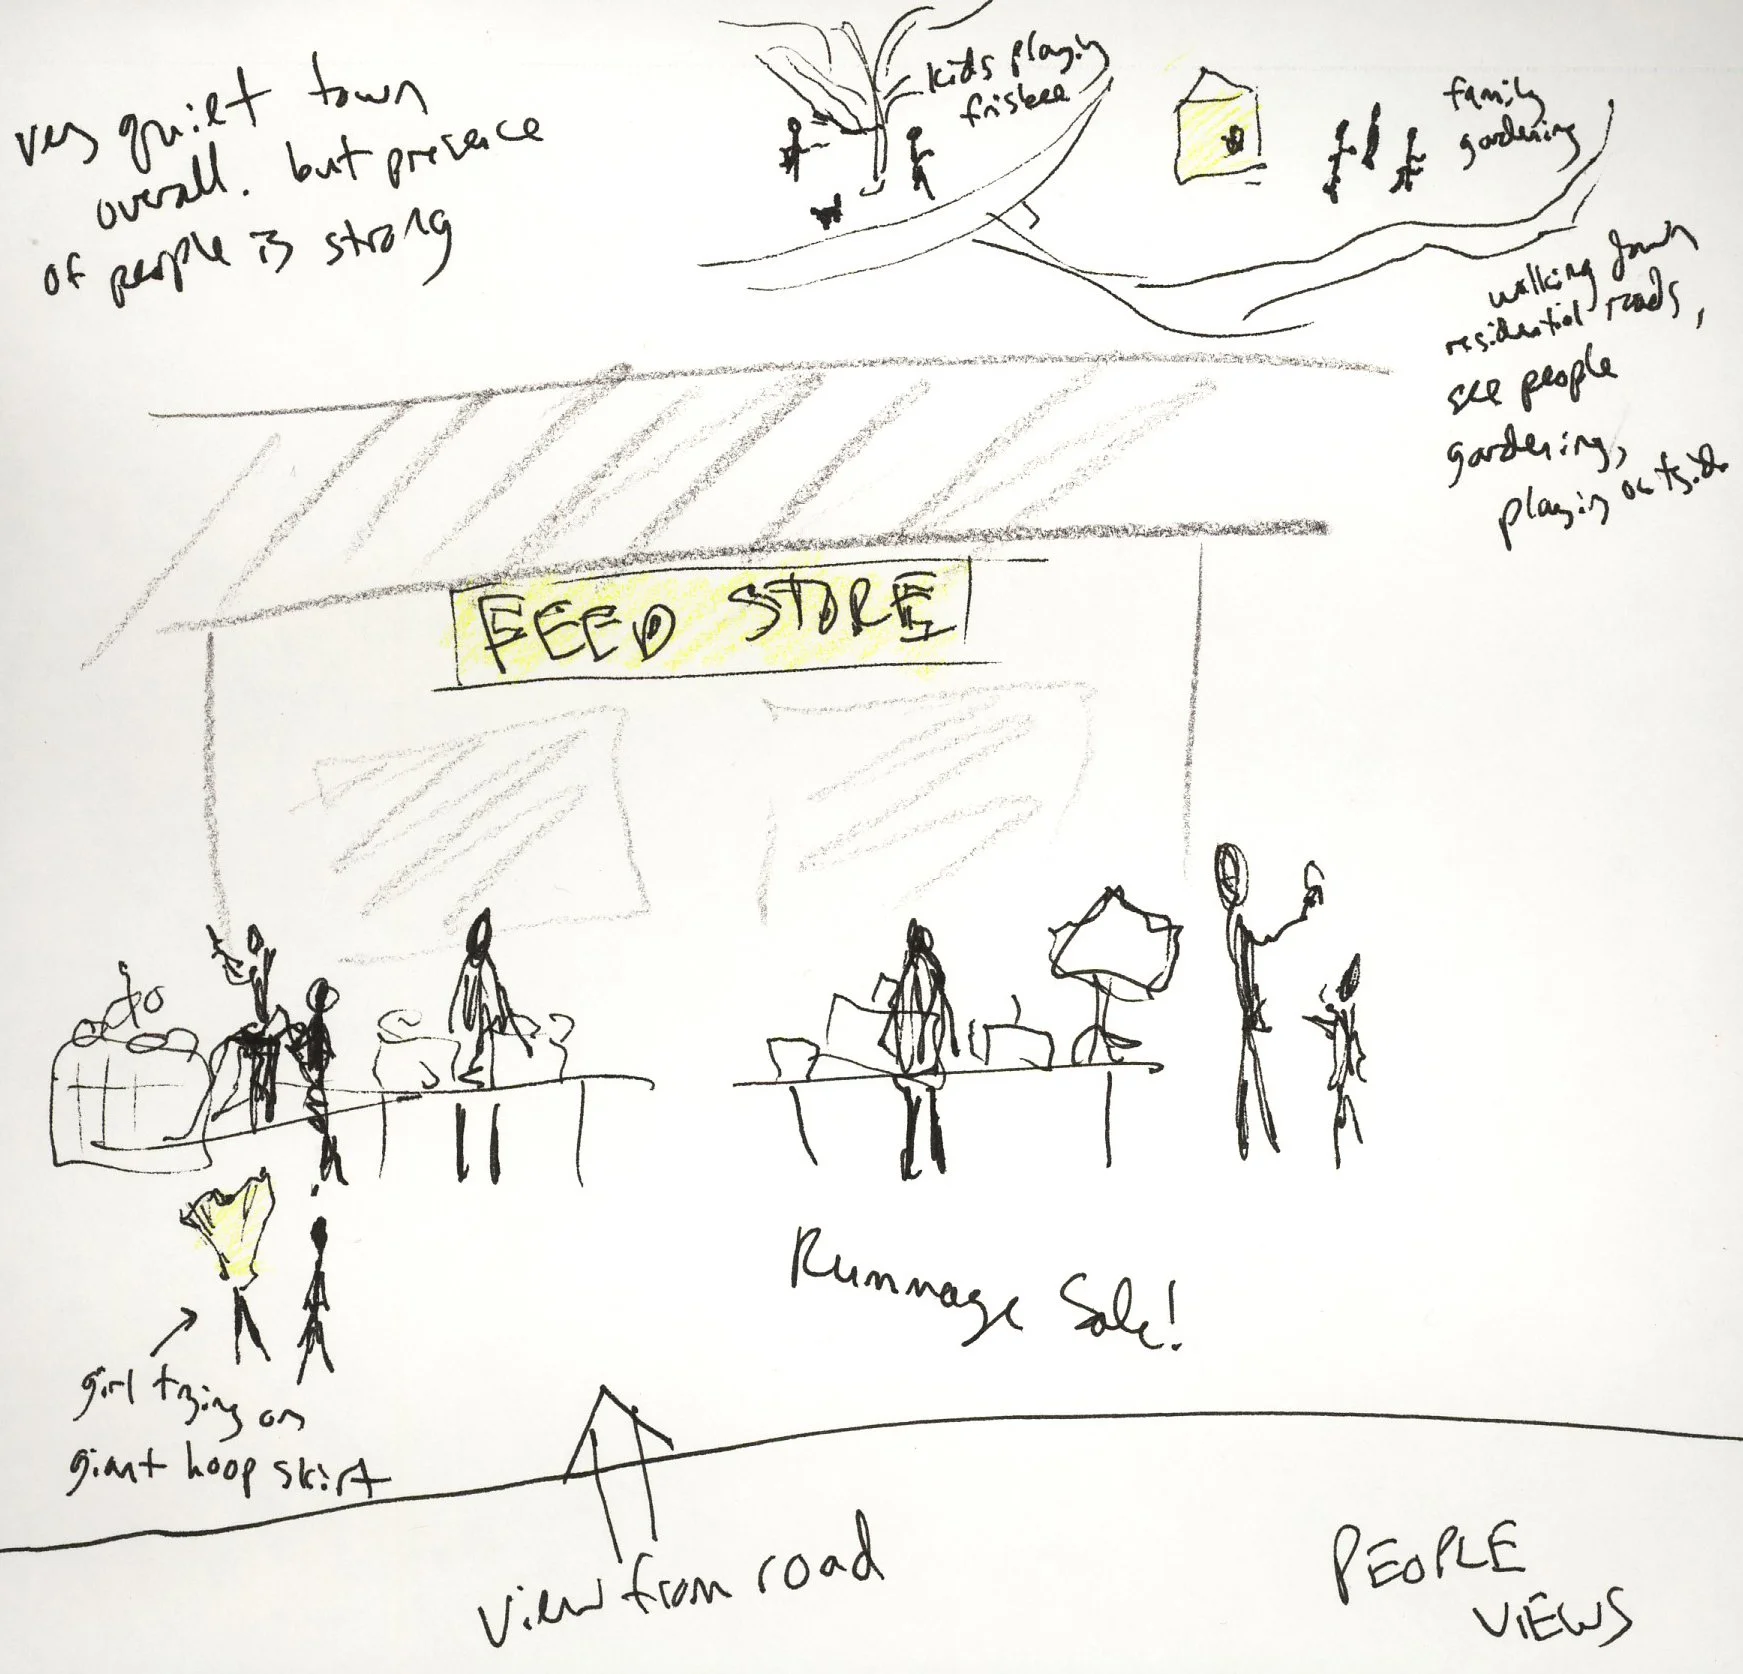 very quiet town
overall. but presence
of people is strong
kids playing
frisbee
family
gardening
walking down
residential roads,
see people
gardening,
playing outside
FEED STORE
Rummage Sale!
girl trying on
giant hoop skirt
view from road
PEOPLE
VIEWS